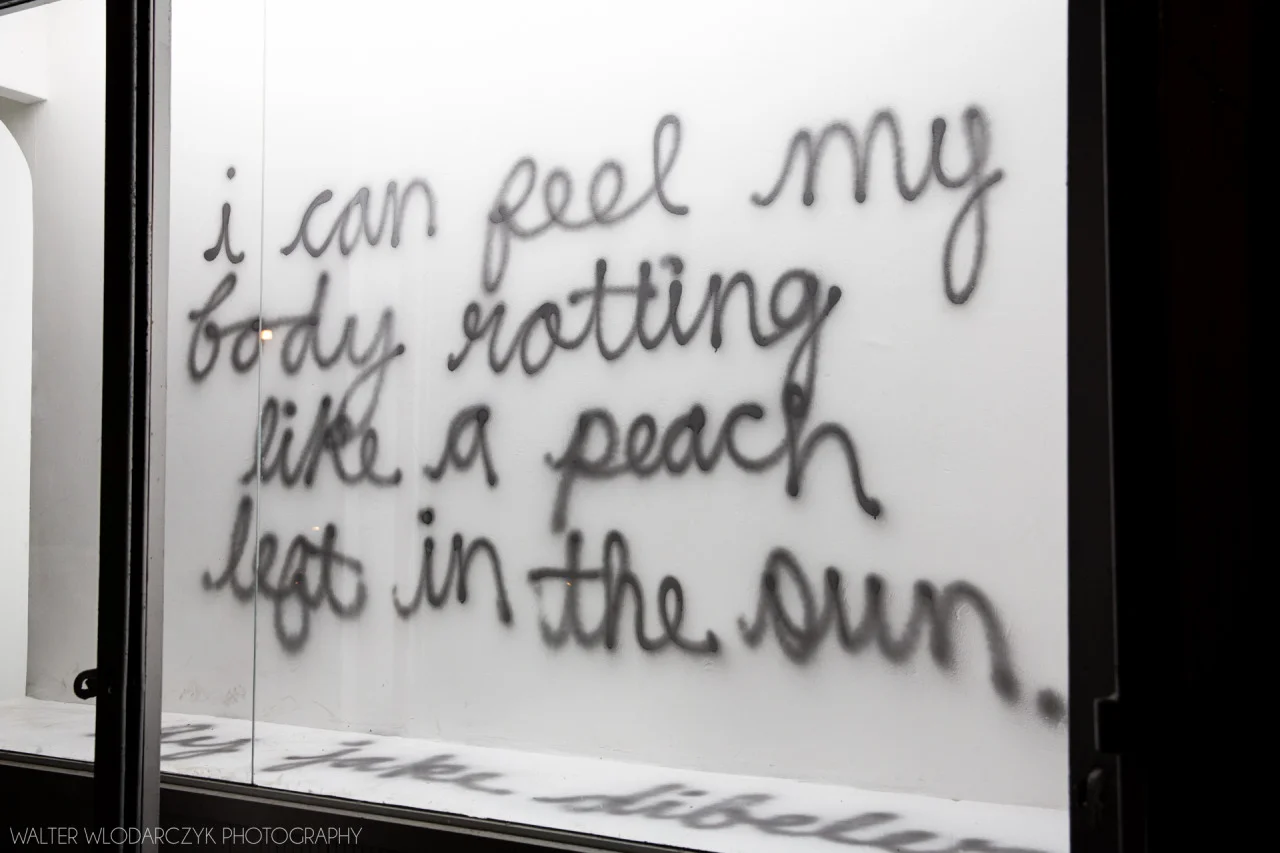 i can feel my
body rotting
like a peach
left in the sun.
by jake dibeler
WALTER WLODARCZYK PHOTOGRAPHY